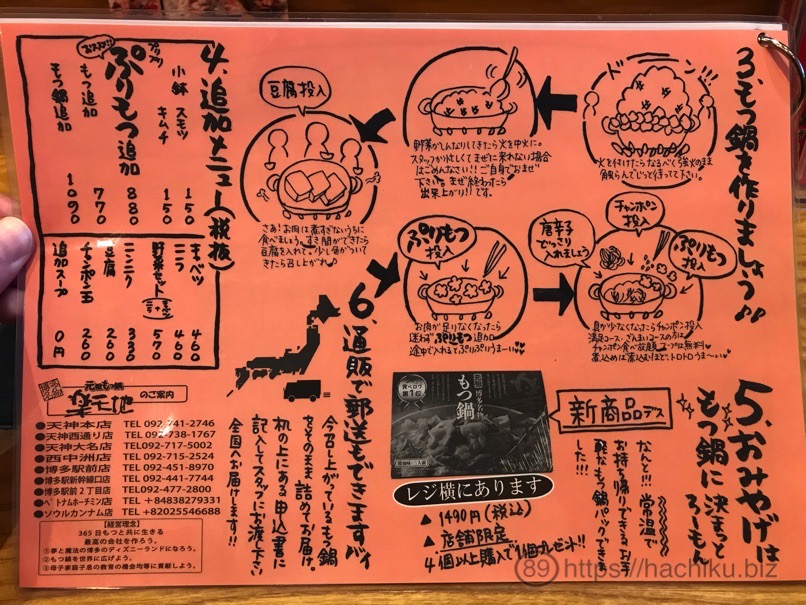 3、もつ鍋を作りましょう♪♪
ドーン!!!
火を付けたらなるべく強火のまま
触らんでじっと待って下さい。
野菜がしんなりしてきたら火を中火に。
スタッフが忙しくてまぜに来れない場合
はごめんなさい!!ご自身でおまぜ
下さい。まぜ終わったら
出来上がり!!です。
豆腐投入
さあ!お肉は煮すぎないうちに
食べましょう。すき間ができたら
豆腐を入れて。少し色がついて
きたら召し上がれ♪
ぷりもつ
投入
お肉が足りなくなったら
迷わずぷりもつ追加
途中で入れてもぷりぷりうまーい♥♥
唐辛子
どっさり
入れましょう
チャンポン
投入
ぷりもつ
投入
具が少なくなったらチャンポン投入
満足コース・ざんまいコースの方は
チャンポン食べ放題
煮込めば煮込むほど、トロトロうま〜い♥
4、追加メニュー(税抜)
小鉢 スモツ 150
キムチ 150
プリップリ
ぷりもつ追加 880
もつ追加 770
もつ鍋追加 1090
キャベツ 460
ニラ 460
野菜セット 570
ニンニク 330
豆腐 260
チャンポン玉 260
追加スープ 0円
5、おみやげは
もつ鍋に決まっと
ろーもん
新商品デス
なんと!!!常温で
お持ち帰りできるお手
軽なもつ鍋パックできま
した!!!
食べログ
第1位
博多名物
もつ鍋
レジ横にあります
▲1490円(税込)
▲店舗限定
4個以上購入で1個プレゼント!!
6、通販で郵送もできますバイ
今召し上がっているもつ鍋
をそのまま詰めてお届け。
机の上にある申込書に
記入してスタッフにお渡し下さい
全国へお届けします!!
元祖もつ鍋
楽天地
のご案内
●天神本店 TEL 092-741-2746
●天神西通り店 TEL 092-738-1767
●天神大名店 TEL 092-717-5002
●西中洲店 TEL 092-715-2524
●博多駅前店 TEL 092-451-8970
●博多駅新幹線口店 TEL 092-441-7744
●博多駅前2丁目店 TEL 092-477-2800
●ベトナムホーチミン店 TEL +84838279331
●ソウルカンナム店 TEL +82025546688
【経営理念】
365日もつと共に生きる
最高の会社を作ろう。
①夢と魔法の博多のディズニーランドになろう。
②もつ鍋を世界に広げよう。
③母子家庭子息の教育の機会均等に貢献しよう。
89 https://hachiku.biz